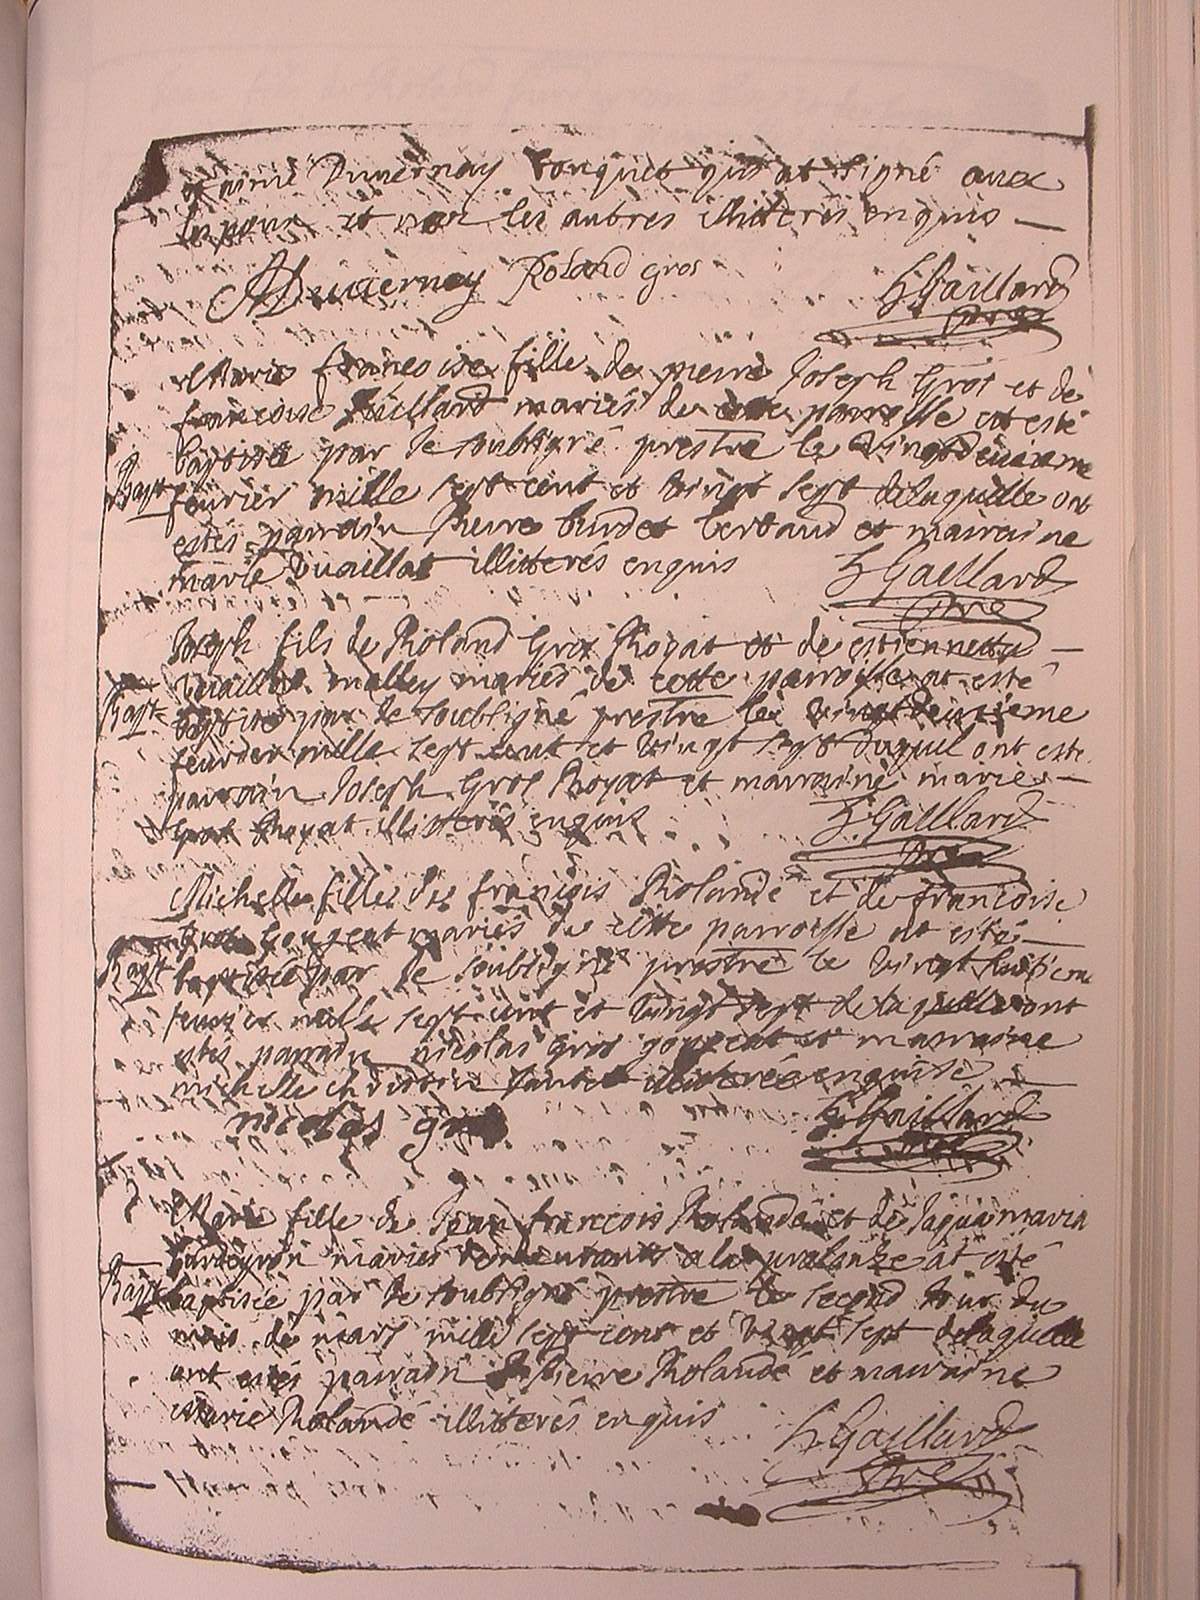 et aimé Duvernay Fouquet qui at signé avec
le pere et non les autres illiterés enquis
ADuvernay Roland gros G Gaillard
pre
Marie francoise fille de pierre Joseph Gros et de
francoise Juillard mariés de cette parroisse at esté
Bapt baptisée par le soubsigné prestre le vingtdeuxieme
fevrier mille sept cent et vingt sept de laquelle ont
estés parrain Pierre burdet berbaud et marraine
marie Vuaillat illiterés enquis G Gaillard
pre
Joseph fils de Roland Gros Royat et de estiennette
Vuaillat malley mariés de cette parroisse at esté
Bapt baptisé par le soubsigné prestre le vingtdeuxieme
fevrier mille sept cent et vingt sept duquel ont esté
parrain Joseph Gros Royat et marraine marie
Gros Royat illiterés enquis G Gaillard
pre
Michelle fille de francois Rolandé et de francoise
Gros gougeat mariés de cette parroisse at esté
Bapt baptisée par le soubsigné prestre le vingt huitieme
fevrier mille sept cent et vingt sept de laquelle ont
estés parrain nicolas gros gougeat et marraine
michelle illiterée enquise
nicolas gros G Gaillard
pre
Marie fille de Jean francois Rolandé et de Jaquamaria
mariés a la at esté
Bapt baptisée par le soubsigné prestre le second jour du
mois de mars mille sept cent et vingt sept de laquelle
ont estés parrain Pierre Rolandé et marraine
Marie Rolandé illiterés enquis G Gaillard
pre